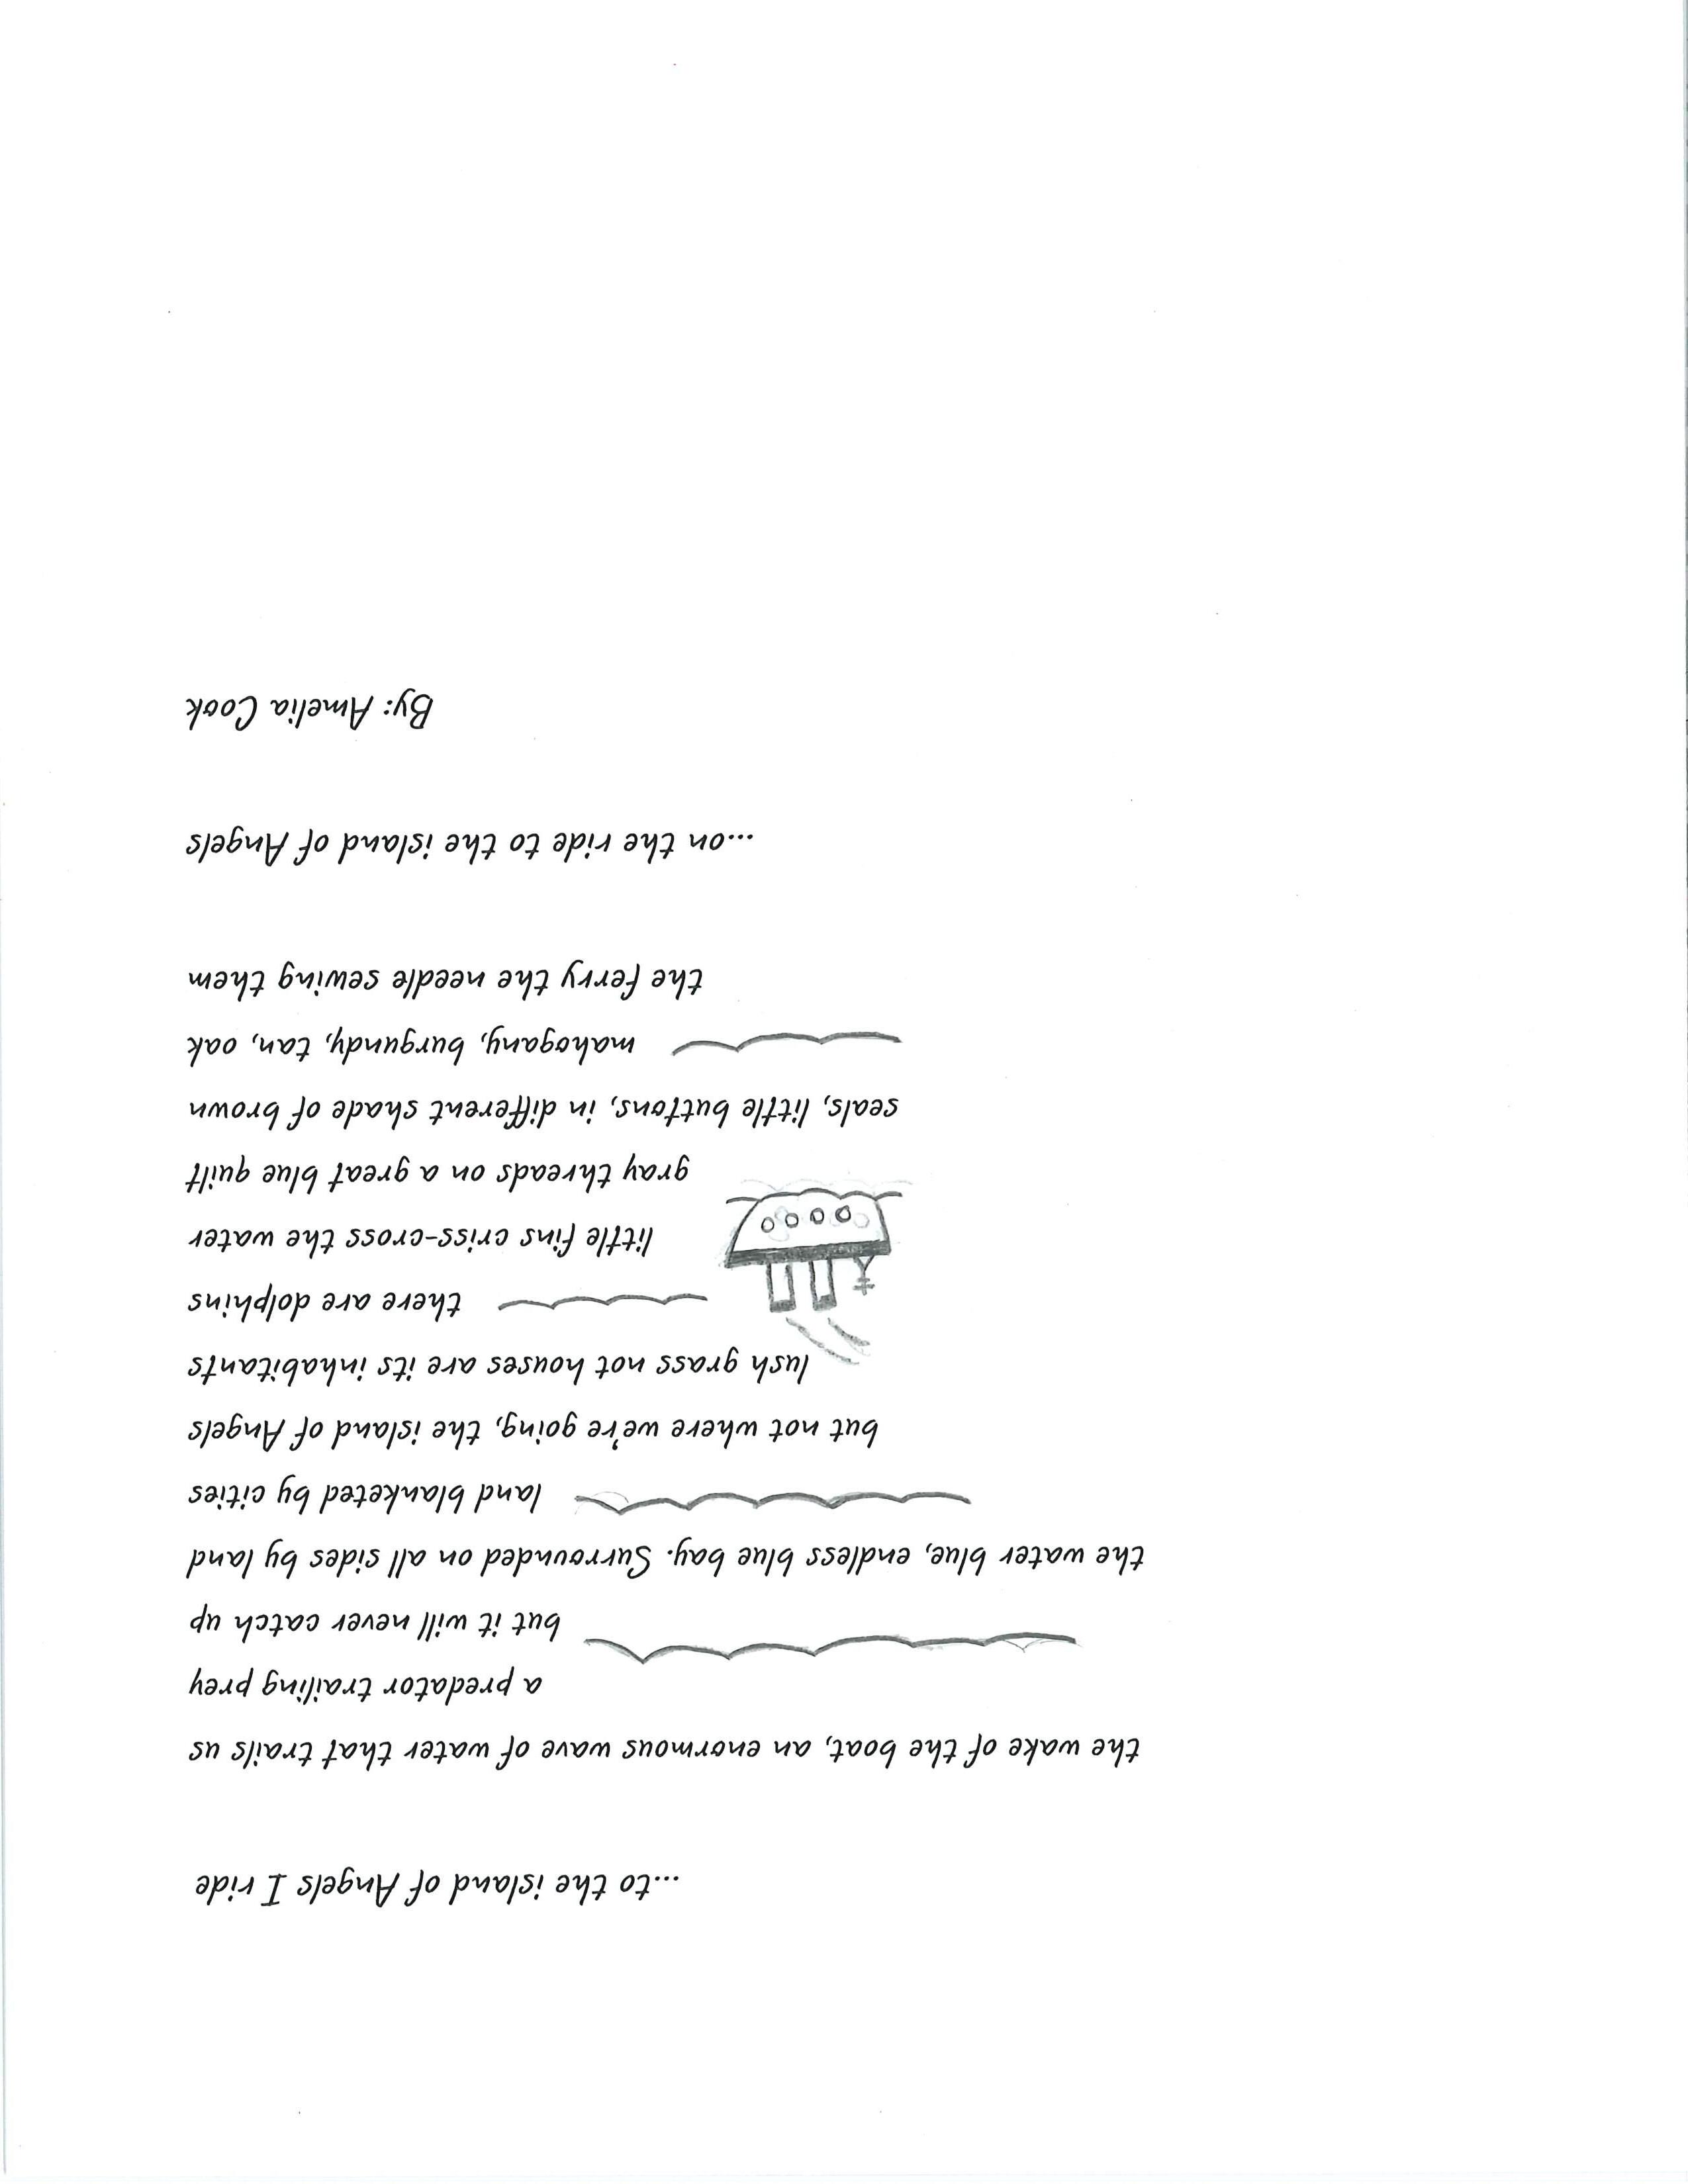 ...to the island of Angels I ride
the wake of the boat, an enormous wave of water that trails us
a predator trailing prey
but it will never catch up
the water blue, endless blue bay. Surrounded on all sides by land
land blanketed by cities
but not where we're going, the island of Angels
lush grass not houses are its inhabitants
there are dolphins
little fins criss-cross the water
gray threads on a great blue quilt
seals, little buttons, in different shade of brown
mahogany, burgundy, tan, oak
the ferry the needle sewing them
...on the ride to the island of Angels
By: Amelia Cook